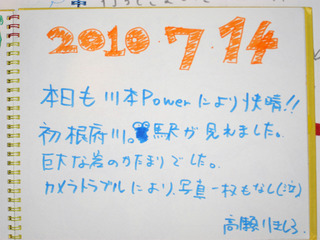 2010.7.14
本日も川本Powerにより快晴!!
初根府川。駅が見れました。
巨大な岩のかたまりでした。
カメラトラブルにより、写真一枚もなし(泣)
高瀬